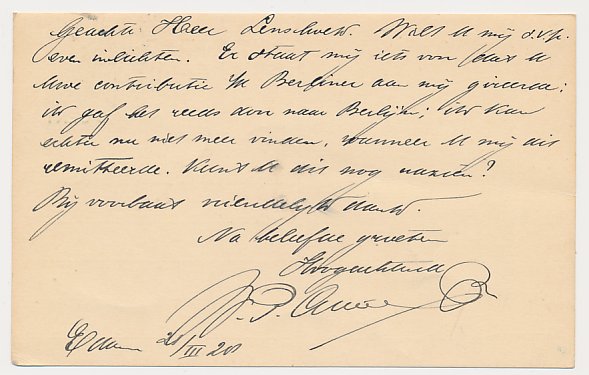 Geachte Heer Lenshoek. Wilt U mij s.v.p.
even inlichten. Er staat mij iets van dat U
Uwe contributie p/a Berliner aan mij gireerde;
ik gaf het reeds door naar Berlijn; ik kan
echter nu niet meer vinden, wanneer U mij dit
remitteerde. Kunt U dit nog nazien?
Bij voorbaat vriendelijk dank.
Na beleefde groeten
Hoogachtend
J. P.
Edam 28/III 20